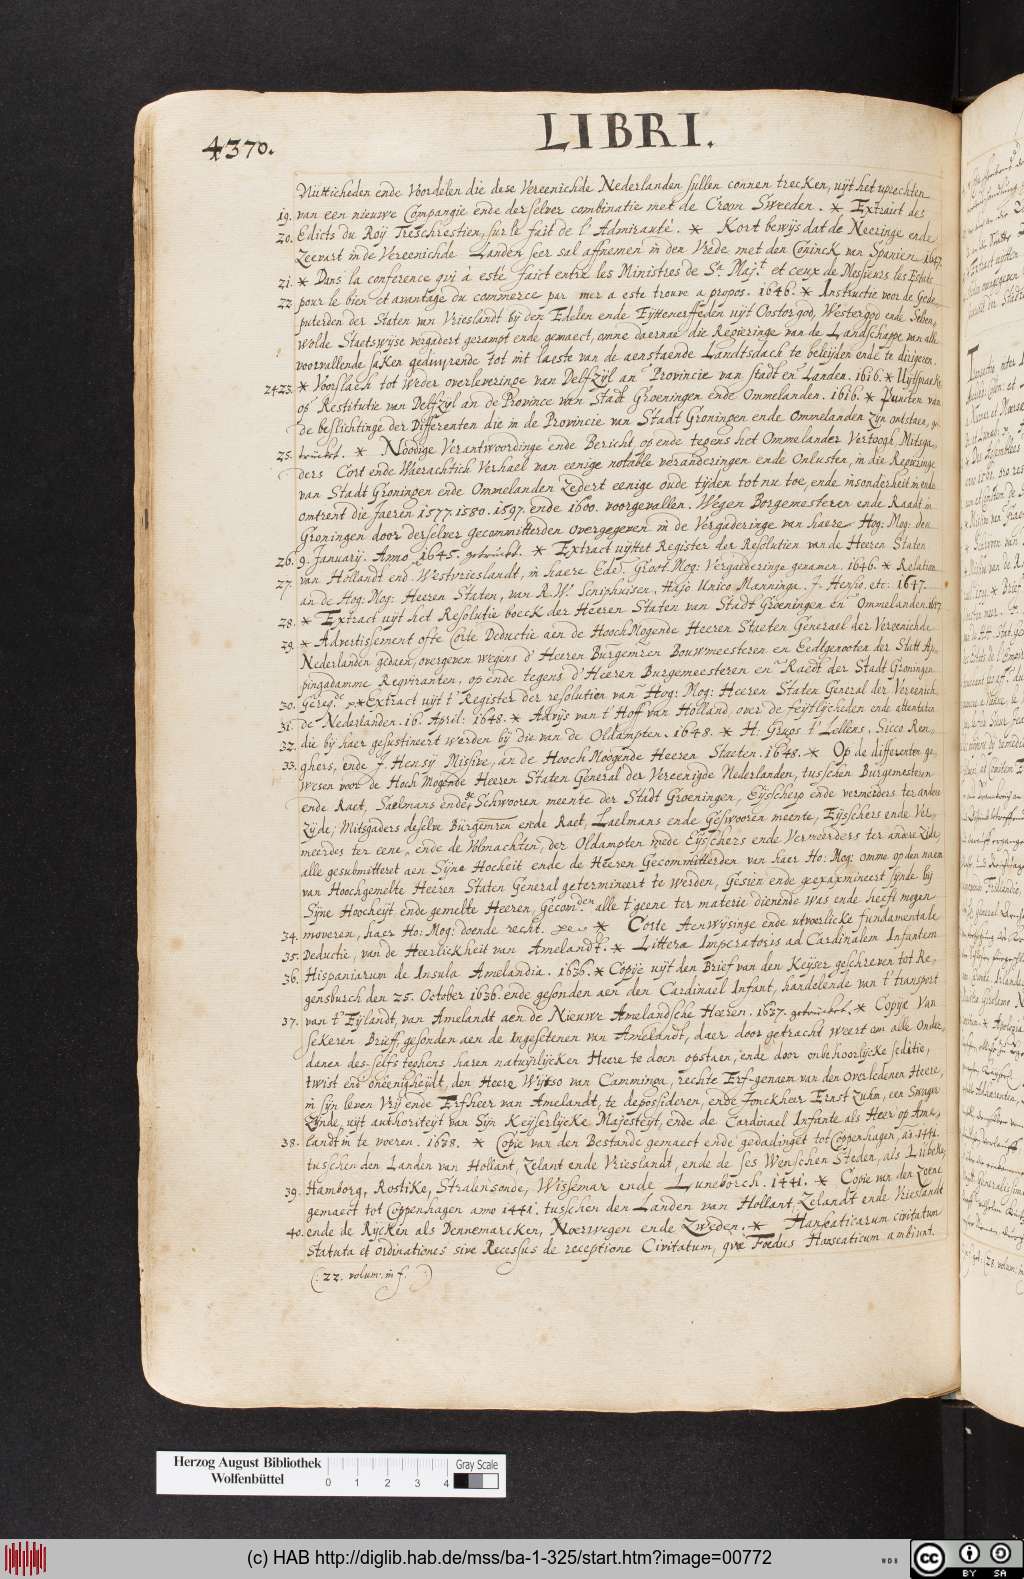 4370.
LIBRI.
Nutticheden ende Voordelen die dese Vereenichde Nederlanden sullen connen trecken, uijt het uprechten
19. van een nieuwe Compangie ende derselver combinatie met de Croon Sweeden. * Extrait des
20. Edicts du Roÿ Treschrestien, sur le fait de l'Admiraute. * Kort bewijs dat de Neeringe ende
Zeevart in de Vereenichde Landen seer sal affnemen in den Vrede met den Coninck van Spanien 1647.
21. * Dans la conference qui à esté faict entre les Ministres de Sa. Majt. et ceux de Messieurs les Estats
22. pour le bien et avantage du commerce par mer a este trouve a propos. 1646. * Instructie voor de Gede-
puterden der Staten van Vrieslandt bij den Edelen ende Erffeden uijt Oostergoo, Westergoo ende Seven-
wolde Staetswijse vergadert geraempt ende gemaect, omne daernae die Regieringe van de Landschappe van alle
voorvallende saken geduijrende tot int laeste van de aenstaende Landtsdach te beleijden ende te dirigeren.
24. 23. * Voorslach tot weder overleveringe van Delfzijl an Provincie van stadt en Landen. 1616. * Uijtspraeke
of Restitutie van Delfzijl an de Province van Stadt Groeningen ende Ommelanden. 1616. * Puncten van
de beslichtinge der Differenten die in de Provincie van Stadt Groningen ende Ommelanden zijn ontstaen, ge-
25. truckt. * Noodige Verantwoordinge ende Bericht op ende tegens het Ommelander Vertoogh Mitsga-
ders Cort ende Waerachtich Verhael van eenige notable veranderingen ende Onlusten, in die Regieringe
van Stadt Groningen ende Ommelanden Zedert eenige oude tijden tot nu toe, ende insonderheit in ende
omtrent die Jaeren 1577. 1580. 1597. ende 1600. voorgevallen. Wegen Borgemesteren ende Raadt in
Groningen door derselver Gecommitterden overgegeven in de Vergaderinge van haere Hog: Mog: den
26. 9. January. Anno 1645. getruckt. * Extract uijthet Register der Resolutien van de Heeren Staten
27. van Hollandt end Westvrieslandt, in haere Ede. Groot. Mog: Vergaderinge genamen. 1646. * Relation
an de Hog: Mog: Heeren Staten, van R. W. Schiphuisen. Hajo Unico Manninga. J. Hensio, etc: 1647.
28. * Extract uijt het Resolutie boeck der Heeren Staten van Stadt Groeningen en Ommelanden. 1647
29. * Advertissement ofte Corte Deductie aen de HoochMogende Heeren Staeten Generael der Vereenichde
Nederlanden gedaen, overgeven wegens d' Heeren Burgemren Bouwmeesteren en Eedtgenooten der Statt Ap-
pingadamme Reqviranten, op ende tegens d' Heeren Burgemeesteren en Raedt der Stadt Groningen
30. Gereqde. * Extract uijt t' Register der resolution van Hog: Mog: Heeren Staten General der Vereenich-
31. de Nederlanden. 16. April: 1648. * Advijs van t' Hoff van Holland, over de feÿtlijcheden ende attentaten
32. die bij haer gesustineert werden bij die van de Oldampten. 1648. * H. Gruos t' Lellens, Sicco Ren-
33. ghers, ende J. Hensÿ Missive, an de Hooch Moogende Heeren Staeten. 1648. * Op de differenten ge-
wesen voor de Hoch Mogende Heeren Staten General der Vereenigde Nederlanden, tusschen Burgemesteren
ende Raet, Taelmans ende Geschwooren meente der Stadt Groeningen, Eijscherp ende vermeirders ter andere
Zijde; Mitsgaders deselve Burgemren ende Raet, Laelmans ende Geswooren meente, Eijschers ende Ver-
meerdes ter eene, ende de Volmachten, der Oldampten mede Eijschers ende Vermeerders ter andere Zide,
alle gesubmitteret aen Sijne Hocheit ende de Heeren Gecommitterden van haer Ho: Mog: omme op den naem
van Hoochgemelte Heeren Staten General getermineert te werden, Gesien ende geexamineert sijnde bij
Sijne Hoocheijt ende gemelte Heeren, Gecomden alle t' geene ter materie dienende was ende heeft mogen
34. moveren, haer Ho: Mog: doende recht. * Corte Aenwijsinge ende utvoerlicke fundamentale
35. Deductie, van de Heerlickheit van Amelandt. * Littera Imperatoris ad Cardinalem Infantem
36. Hispaniarum de Insula Amelandia. 1636. * Copije uijt den Brief van den Keÿser geschreven tot Re-
gensburch den 25. October 1636. ende gesonden aen den Cardinael Infant, handelende van t' transport
37. van t' Eÿlandt, van Amelandt aen de Nieuwe Amelandsche Heeren. 1637. getruckt. * Copije Van
sekeren Brieff, gesonden aen de Ingesetenen van Amelandt, daer door getracht weert om alle Onder-
danen des-selfs teghens haren natuijrlijcken Heere te doen opstaen, ende door onbehoorlijcke seditie,
twist ende oneenigheijdt, den Heere Wijtso van Camminga, rechte Erf-genaem van den overledenen Heere,
in sijn leven Vrij ende Erfheer van Amelandt, te deposideren, ende Jonckheer Ernst Zuhm, een Sweager
Zijnde, uijt authoriteijt van Sijn Keÿserlijcke Majesteÿt, ende de Cardinael Infante als Heer op Ame-
38. landt in te voeren. 1638. * Copie van den Bestande gemaect ende gedadinget tot Coppenhagen, ao. 1441.
tusschen den Landen van Hollant, Zelant ende Vrieslandt, ende de ses Wenschen Steden, als Lübeke,
39. Hamborg, Rostike, Stralensonde, Wissemar ende Luneborch. 1441. * Copie van den Zoene
gemaect tot Coppenhagen anno 1441. tusschen den Landen van Hollant, Zelandt ende Vrieslandt
40. ende de Rijcken als Dennemarcken, Noerwegen ende Zweden. * Hanseaticarum civitatum
Statuta et ordinationes sive Recessus de receptione Civitatum, qvæ Foedus Hanseaticum ambiunt.
(: 22. volum. in f. :)
Herzog August Bibliothek
Wolfenbüttel
0 1 2 3 4
Gray Scale
(c) HAB http://diglib.hab.de/mss/ba-1-325/start.htm?image=00772
WDB
cc BY SA